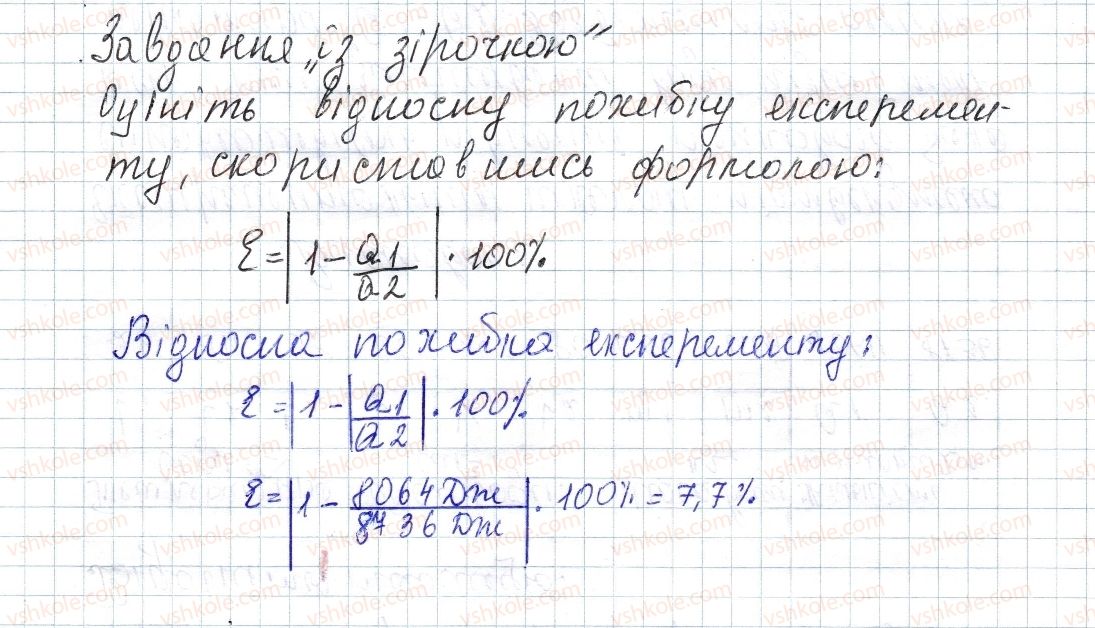 Завдання „із зірочкою"
Оцініть відносну похибку експеремен-
ту, скориставшись формолою:
ε = |1 - Q1/Q2| · 100%
Відносна похибка експеременту:
ε = |1 - |Q1/Q2| · 100%
ε = |1 - 8064 Дж/8736 Дж| · 100% = 7,7%